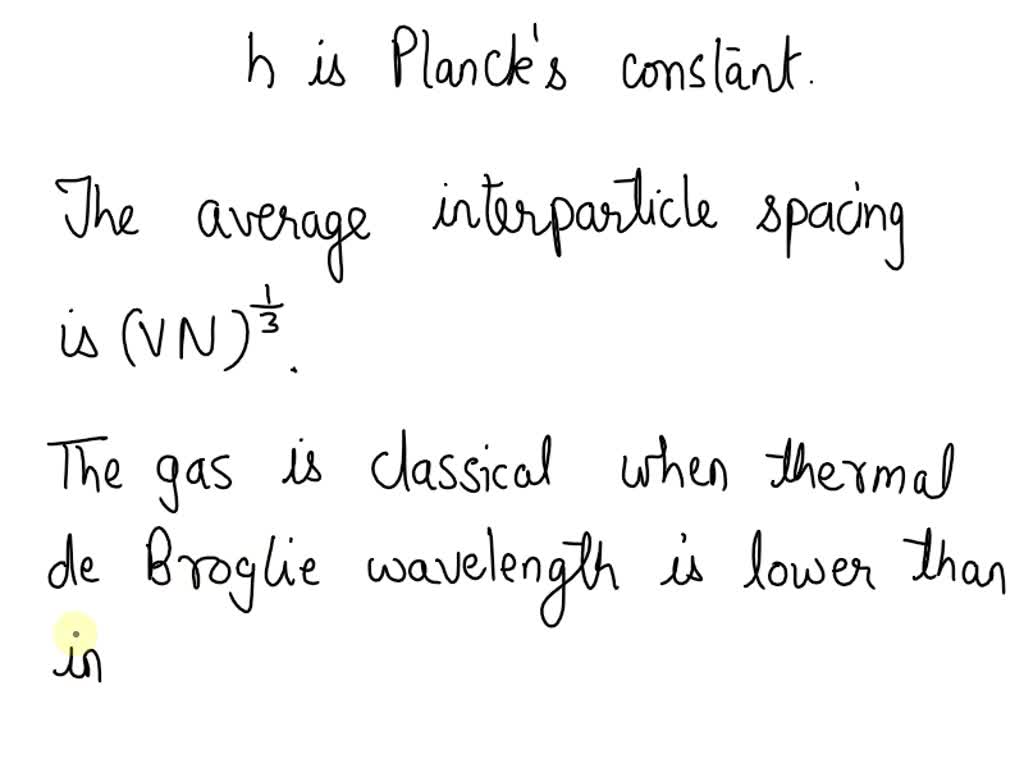 h is Planck's constant.
The average interparticle spacing
is (VN)^{1/3}.
The gas is classical when thermal
de Broglie wavelength is lower than
in